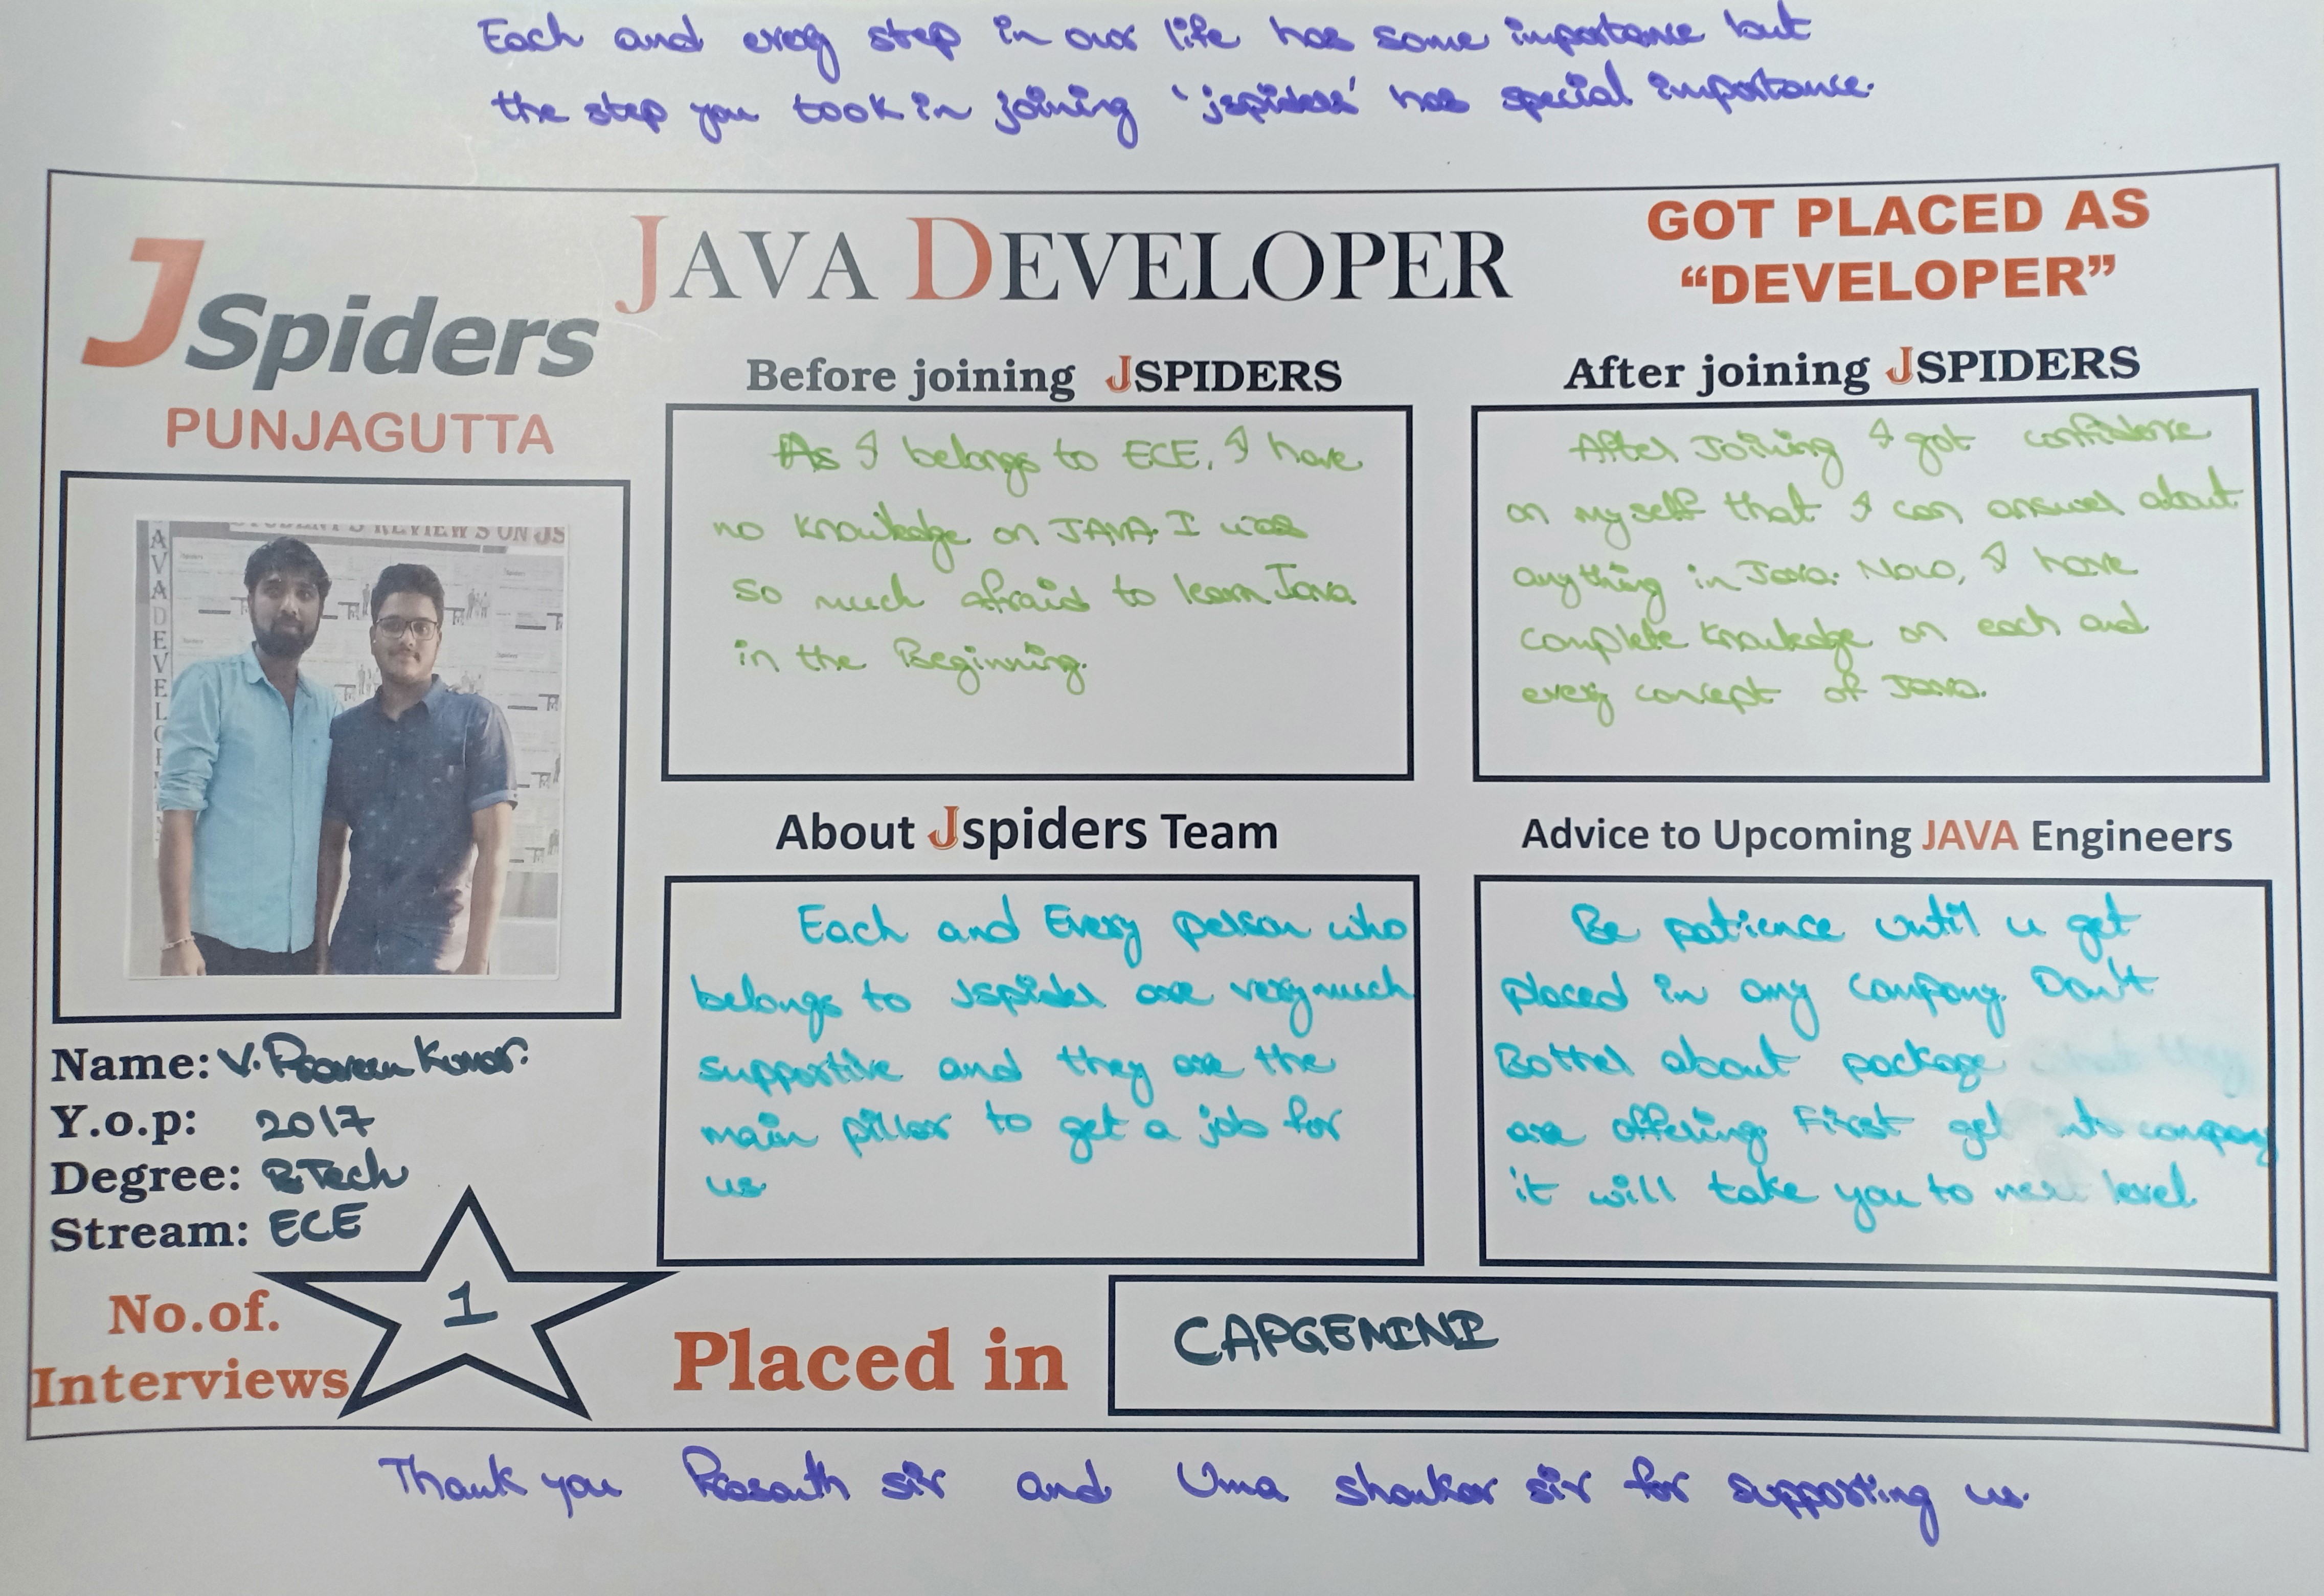 Each and every step in our life has some importance but
the step you took in joining 'jspiders' has special importance.
JSpiders
PUNJAGUTTA
JAVA DEVELOPER
GOT PLACED AS
“DEVELOPER”
Before joining JSPIDERS
As I belongs to ECE, I have
no knowledge on JAVA. I was
so much afraid to learn Java
in the Beginning.
After joining JSPIDERS
After Joining I got confidence
on myself that I can answer about
anything in Java. Now, I have
complete knowledge on each and
every concept of JAVA.
STUDENT'S REVIEWS ON JS
JAVA DEVELOPMENT
About Jspiders Team
Each and Every person who
belongs to Jspider are very much
supportive and they are the
main pillar to get a job for
us
Advice to Upcoming JAVA Engineers
Be patience until u get
placed in any company. Don't
Bother about package what they
are offering. First get into company
it will take you to next level
Name: V. Praveen Kumar.
Y.o.p: 2017
Degree: B.Tech
Stream: ECE
No.of.
Interviews
1
Placed in
CAPGEMINI
Thank you Prasanth sir and Uma shankar sir for supporting us.